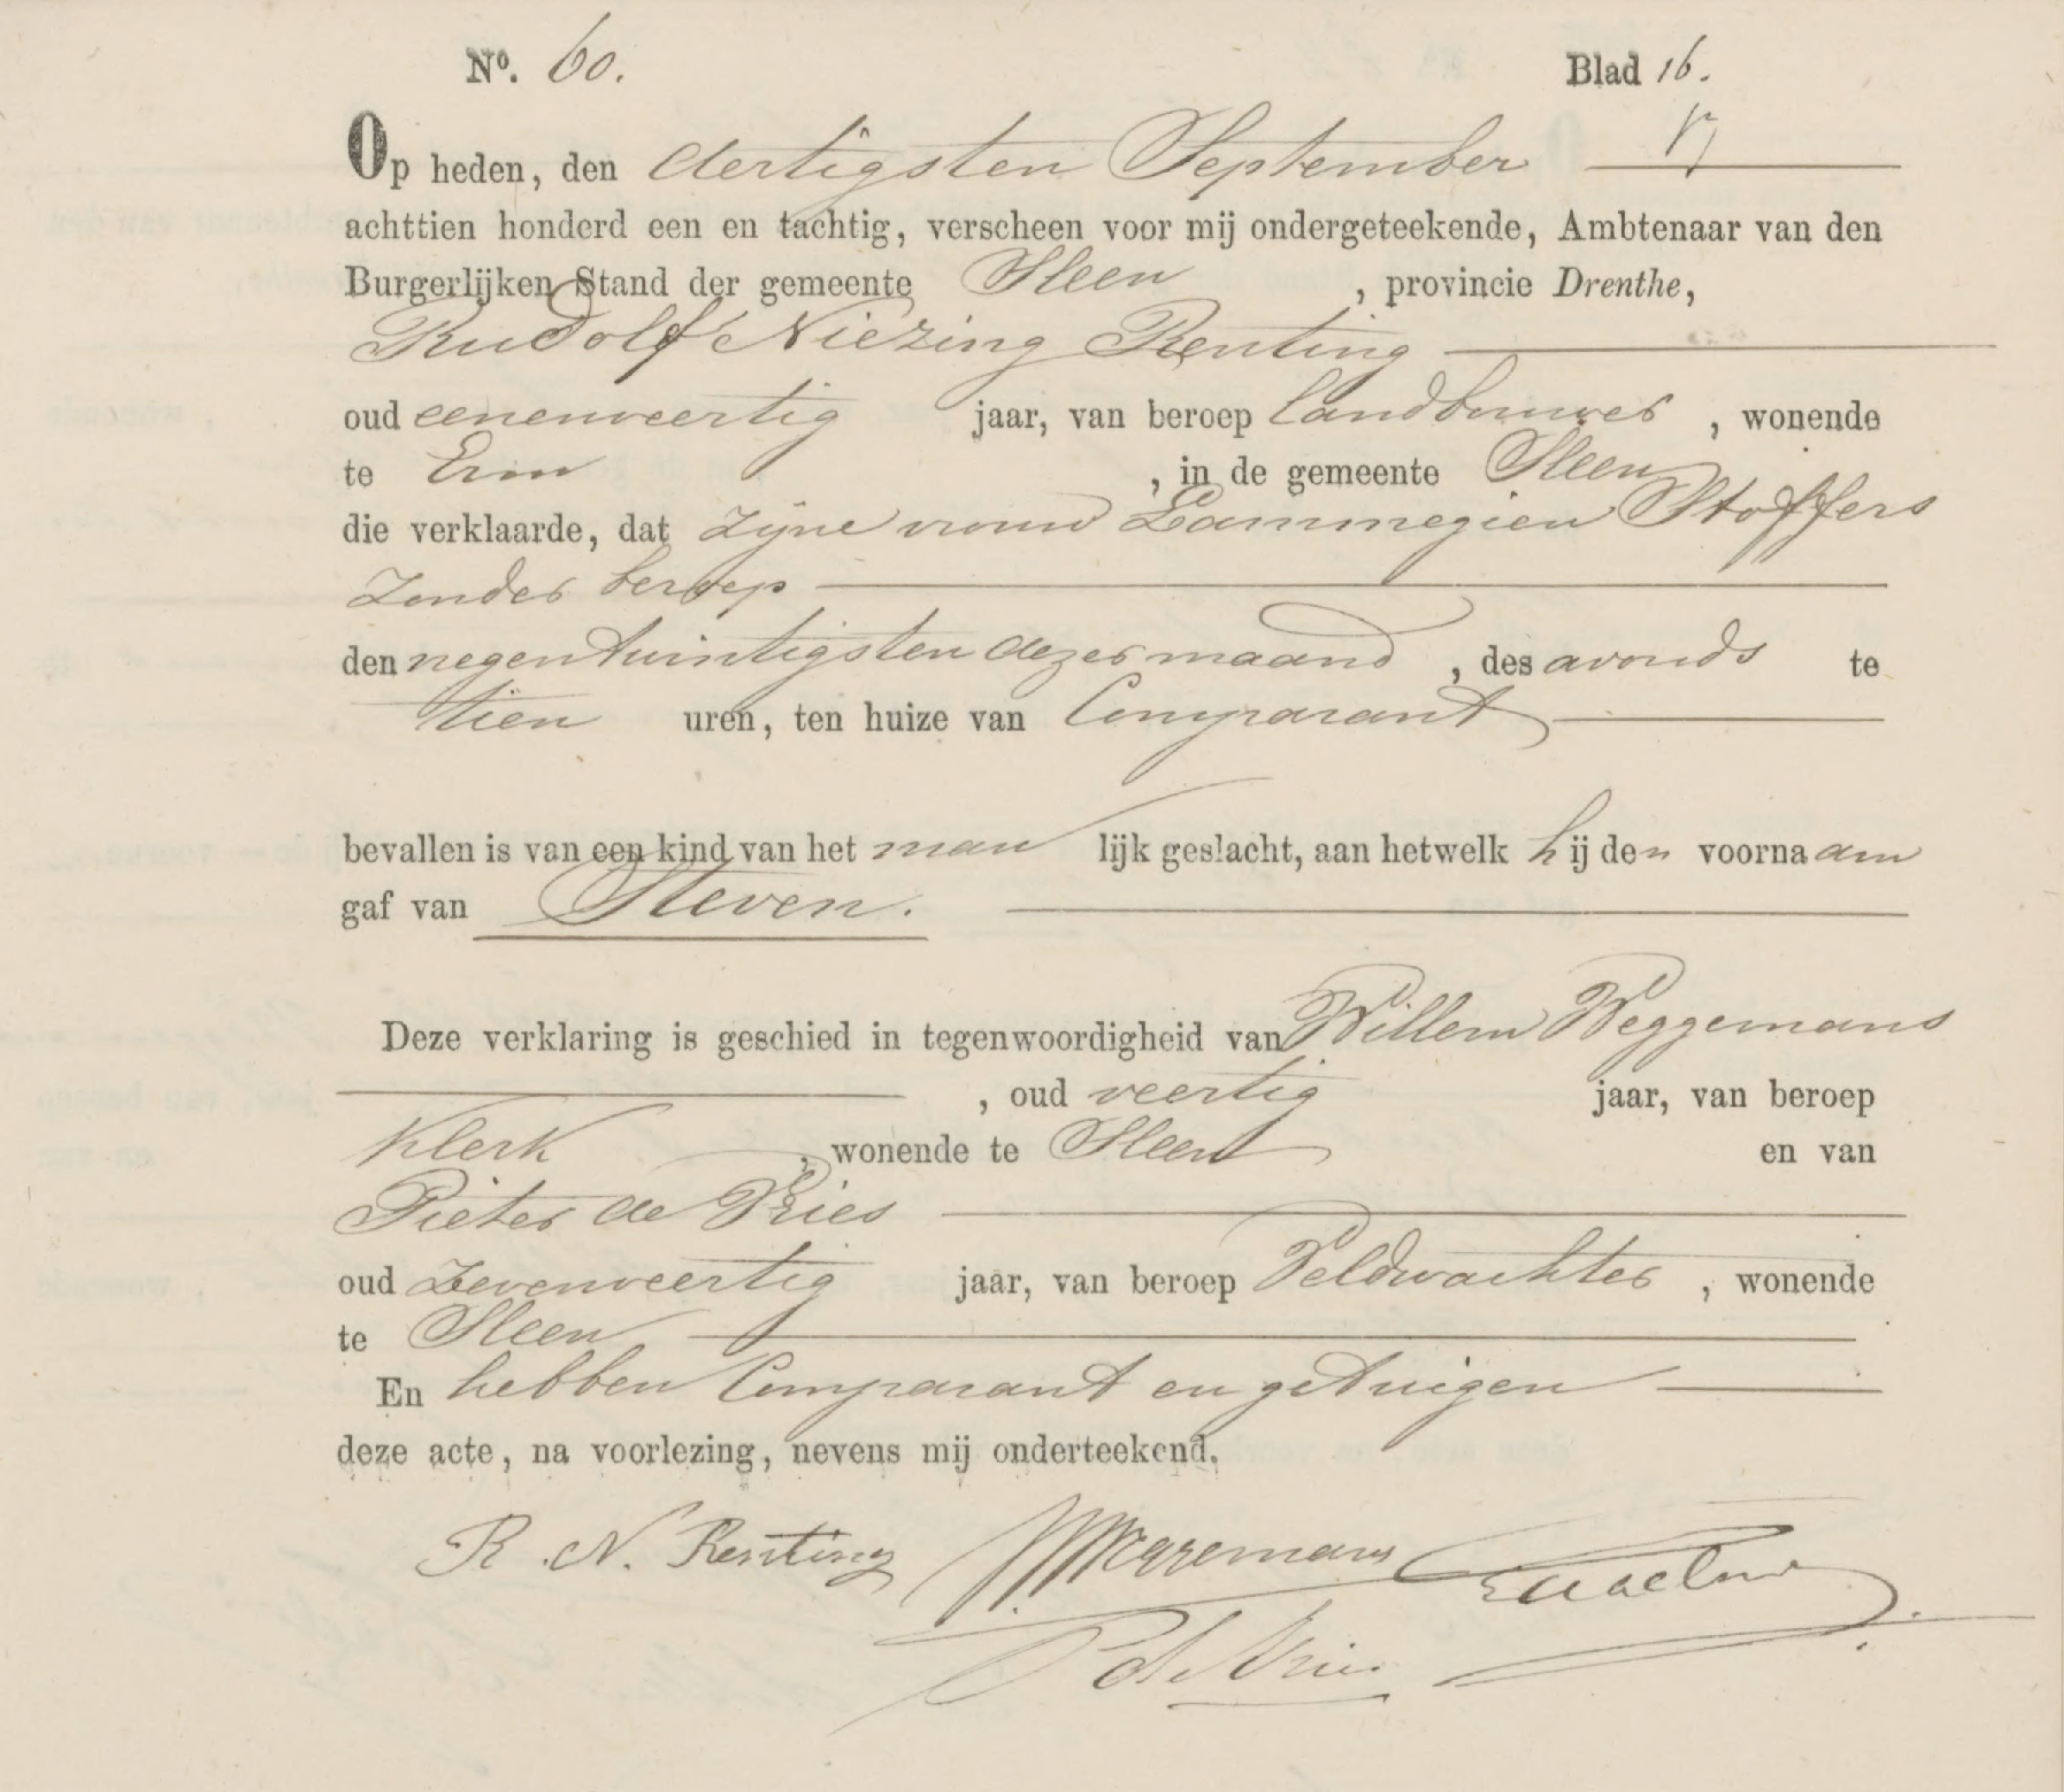 No. 60. Blad 16.
Op heden, den dertigsten September
achttien honderd een en tachtig, verscheen voor mij ondergeteekende, Ambtenaar van den
Burgerlijken Stand der gemeente Sleen, provincie Drenthe,
Rudolf Niezing Renting
oud eenenveertig jaar, van beroep landbouwer, wonende
te Erm, in de gemeente Sleen
die verklaarde, dat zijne vrouw Lammegien Stoffers
zonder beroep
den negentwintigsten dezer maand, des avonds te
tien uren, ten huize van Comparant
bevallen is van een kind van het manlijk geslacht, aan hetwelk hij den voornaam
gaf van Steven.
Deze verklaring is geschied in tegenwoordigheid van Willem Weggemans
, oud veertig jaar, van beroep
Klerk, wonende te Sleen en van
Pieter de Vries
oud zevenveertig jaar, van beroep Veldwachter, wonende
te Sleen
En hebben Comparant en getuigen
deze acte, na voorlezing, nevens mij onderteekend.
R. N. Renting WWeggemans
P de Vries